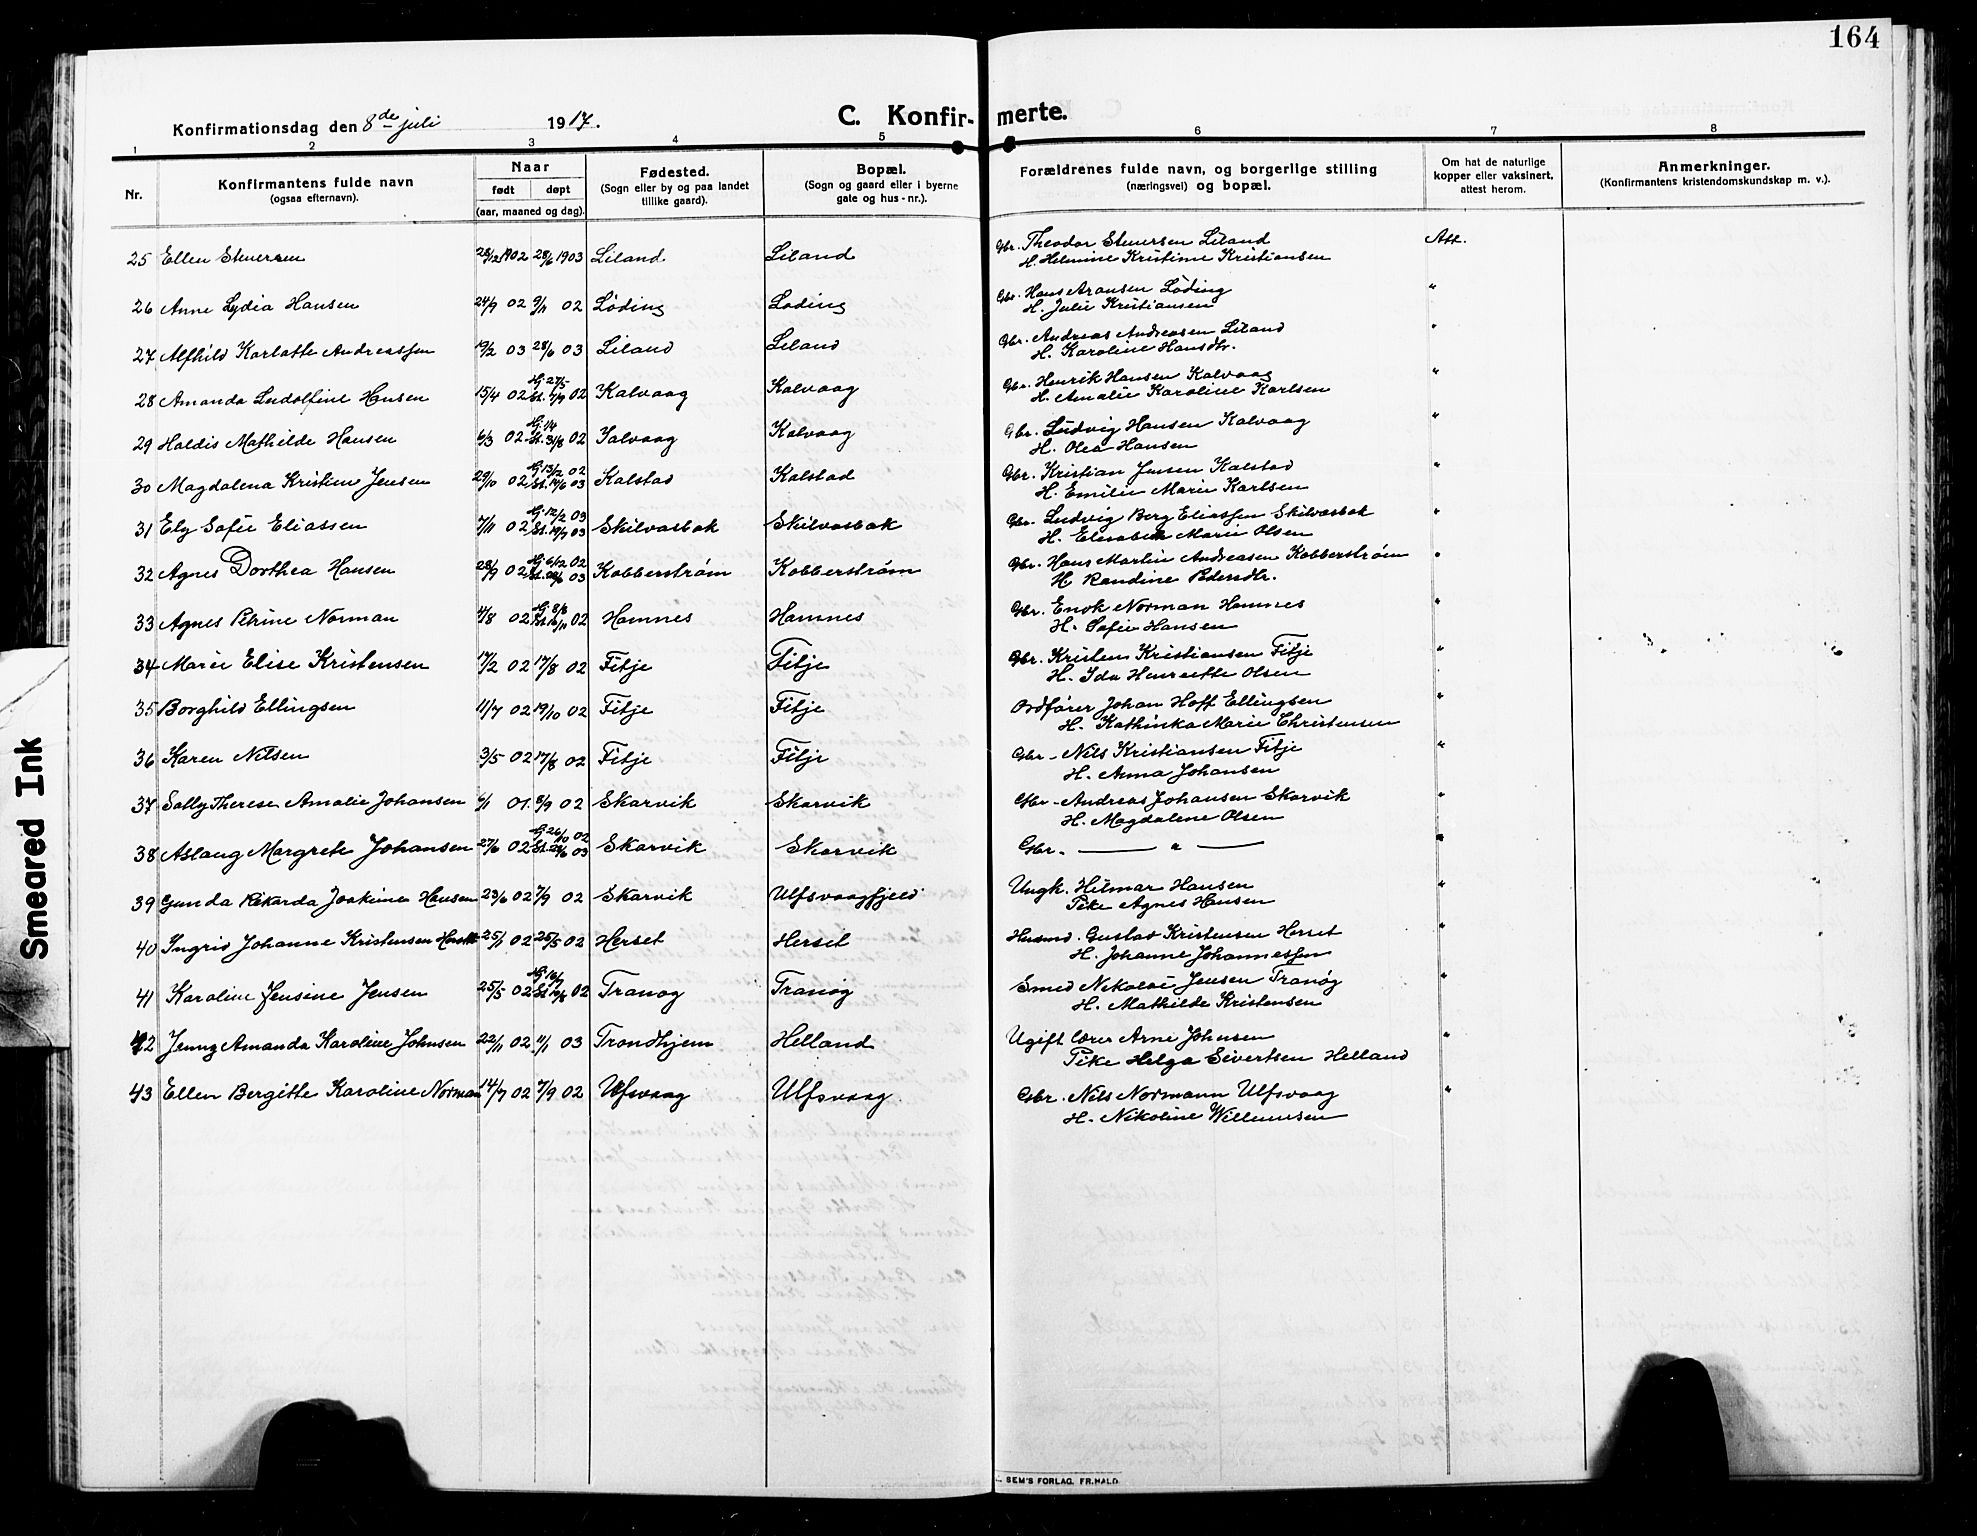 164
Konfirmationsdag den 8de juli 1917.
C. Konfirmerte.
1 2 3 4 5 6 7 8
Nr. Konfirmantens fulde navn (ogsaa efternavn). Naar født døpt (aar, maaned og dag). Fødested. (Sogn eller by og paa landet tillike gaard). Bopæl. (Sogn og gaard eller i byerne gate og hus-nr.). Forældrenes fulde navn, og borgerlige stilling (næringsvei) og bopæl. Om hat de naturlige kopper eller vaksinert, attest herom. Anmerkninger. (Konfirmantens kristendomskundskap m. v.).
25 Ellen Stenersen 28/12 1902 28/6 1903 Liland Liland Gbr. Theodor Stenersen Liland Att.
H. Helmine Kristine Kristiansen
26 Anne Lydia Hansen 24/9 02 9/11 02 Løding Løding Gbr. Hans Aronsen Løding "
H. Julie Kristiansen
27 Alfhild Karlotte Andreassen 19/2 03 28/6 03 Liland Liland Gbr. Andreas Andreasen Liland "
H. Karoline Hansdtr.
28 Amanda Ludolfine Hansen 15/4 02 Hj. 27/5 St. 7/9 02 Kalvaag Kalvaag Gbr. Henrik Hansen Kalvaag "
H. Amalie Karoline Karlsen
29 Haldis Mathilde Hansen 6/3 02 Hj. 1/4 St. 31/8 02 Kalvaag Kalvaag Gbr. Ludvig Hansen Kalvaag "
H. Olea Hansen
30 Magdalena Kristine Jensen 29/10 02 Hj. 13/12 02 St. 14/6 03 Kalstad Kalstad Gbr. Kristian Jensen Kalstad "
H. Emilie Marie Karlsen
31 Ely Sofie Eliassen 7/11 02 Hj. 12/2 03 St. 19/7 03 Skilvasbak Skilvasbak Gbr. Ludvig Berg Eliassen Skilvasbak "
H. Elisabeth Marie Olsen
32 Agnes Dorthea Hansen 28/9 02 Hj. 6/12 02 St. 28/6 03 Kobberstrøm Kobberstrøm Gbr. Hans Martin Andreasen Kobberstrøm "
H. Randine Pedersdtr.
33 Agnes Petrine Norman 4/8 02 Hj. 8/8 02 Hamnes Hamnes Gbr. Enok Norman Hamnes "
H. Sofie Hansen
34 Marie Elise Kristensen 17/2 02 17/8 02 Fitje Fitje Gbr. Kristen Kristiansen Fitje "
H. Ida Henriette Olsen
35 Borghild Ellingsen 11/7 02 19/10 02 Fitje Fitje Ordfører Johan Hoff Ellingsen "
H. Kathinka Marie Christensen
36 Karen Nilsen 3/5 02 17/8 02 Fitje Fitje Gbr. Nils Kristiansen Fitje "
H. Anna Johansen
37 Sally Therese Amalie Johansen 01. 8/9 02 Skarvik Skarvik Gbr. Andreas Johansen Skarvik "
H. Magdalene Olsen
38 Aslaug Margrete Johansen 27/6 02 Hj. 26/10 02 St. 28/6 03 Skarvik Skarvik Gbr. — " — "
39 Gunda Rikarda Joakime Hansen 23/6 02 7/9 02 Skarvik Ulfsvaagfjeld Ungk. Hilmar Hansen "
Pike Agnes Hansen
40 Ingrid Johanne Kristensen 25/1 02 25/5 02 Herset Herset Husmd. Gustav Kristensen Herset "
H. Johanne Johannessen
41 Karoline Jensine Jensen 25/5 02 Hj. 02 Tranøy Tranøy Smed Nikolai Jensen Tranøy "
H. Mathilde Kristensen
42 Jenny Amanda Karoline Johnsen 22/11 02. 11/1 03 Trondhjem Helland Ugift lærer Arne Johnsen "
Pike Helga Sivertsen Helland
43 Ellen Bergitte Karoline Norman 14/7 02 7/9 02 Ulfsvaag Ulfsvaag. Gbr. Nils Normann Ulfsvaag "
H. Nikoline Willumsen
SEM'S FORLAG. FR.HALD.
Smeared Ink